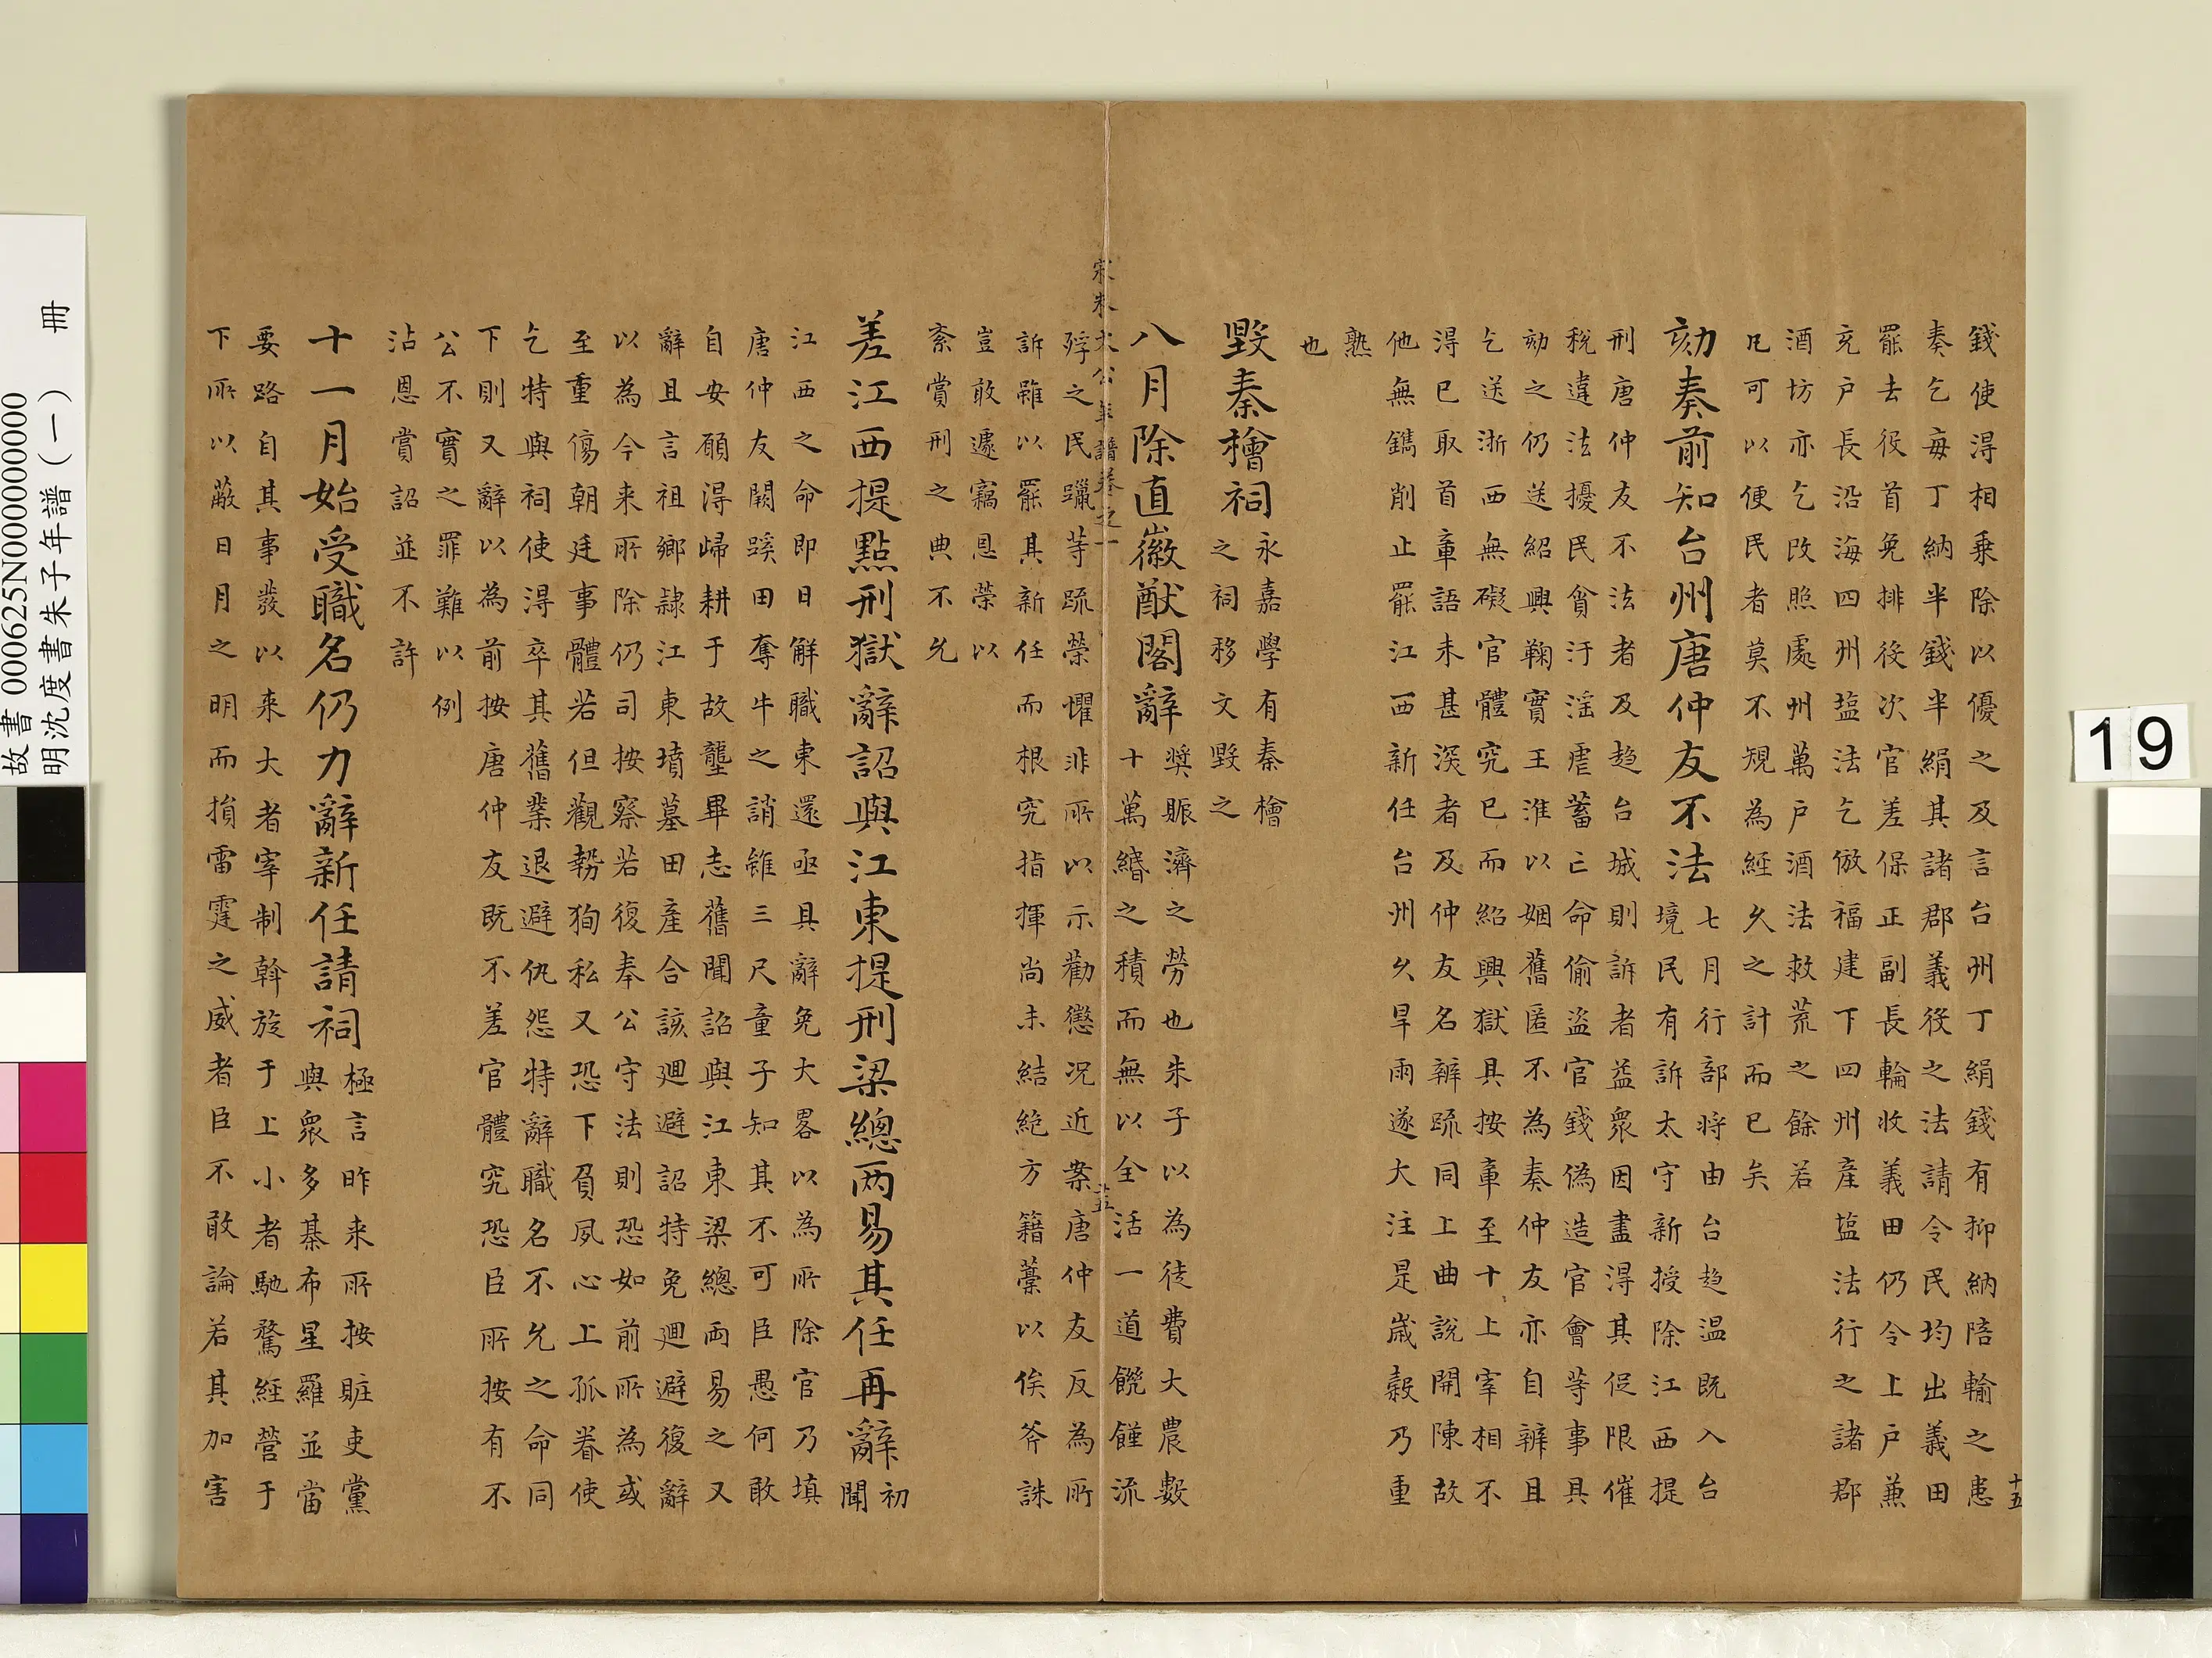 十五
錢使淂相乗除以優之及言台州丁絹錢有抑納陪輸之患
奏乞毎丁納半錢半絹其諸郡義役之法請令民均出義田
罷去役首免排役次官差保正副長輪收義田仍令上戶兼
充戶長沿海四州塩法乞倣福建下四州産塩法行之諸郡
酒坊亦乞改照處州萬戶酒法救荒之餘若
凡可以便民者莫不䂓為經久之計而已矣
劾奏前知台州唐仲友不法
七月行部將由台趋温既入台
境民有訴太守新授除江西提
刑唐仲友不法者及趋台城則訴者益衆因盡淂其促限催
稅違法擾民貪汙滛虐蓄亡命偷盗官錢偽造官會等事具
劾之仍送紹興鞠實王淮以姻舊匿不為奏仲友亦自辨且
乞送浙西無礙官體究已而紹興獄具按章至十上宰相不
淂已取首章語未甚深者及仲友名辨疏同上曲說開陳故
他無鐫削止罷江西新任台州久旱雨遂大注是歲榖乃重
熟
也
毀秦檜祠
永嘉學有秦檜
之祠移文毀之
八月除直徽猷閣辭
奬賑濟之勞也朱子以為徒費大農數
十萬緡之積而無以全活一道饑饉流
宋朱文公年譜卷之一
廿五
殍之民躐等疏榮懼非所以示勸懲况近案唐仲友反為所
訴雖以罷其新任而根究指揮尚未結絕方籍藁以俟斧誅
豈敢遽竊恩榮以
紊賞刑之典不允
差江西提點刑獄辭詔與江東提刑梁總两易其任再辭
初
聞
江西之命即日解職東還亟具辭免大畧以為所除官乃填
唐仲友闕蹊田奪牛之誚雖三尺童子知其不可臣愚何敢
自安願淂歸耕于故壟畢志舊聞詔與江東梁總兩易之又
辭且言祖鄉隷江東墳墓田產合該廻避詔特免廻避復辭
以為今来所除仍司按察若復奉公守法則恐如前所為或
至重傷朝廷事體若但觀勢狥私又恐下負夙心上孤眷使
乞特與祠使淂卒其舊業退避仇怨特辭職名不允之命同
下則又辭以為前按唐仲友既不差官體究恐臣所按有不
公不實之罪難以例
沾恩賞詔並不許
十一月始受職名仍力辭新任請祠
極言昨来所按賍吏黨
與衆多棊布星羅並當
要路自其事發以来大者宰制斡旋于上小者馳騖經營于
下所以蔽日月之明而損雷霆之威者臣不敢論若其加害
19
故書 000625N000000000
明沈度書朱子年譜(一) 冊